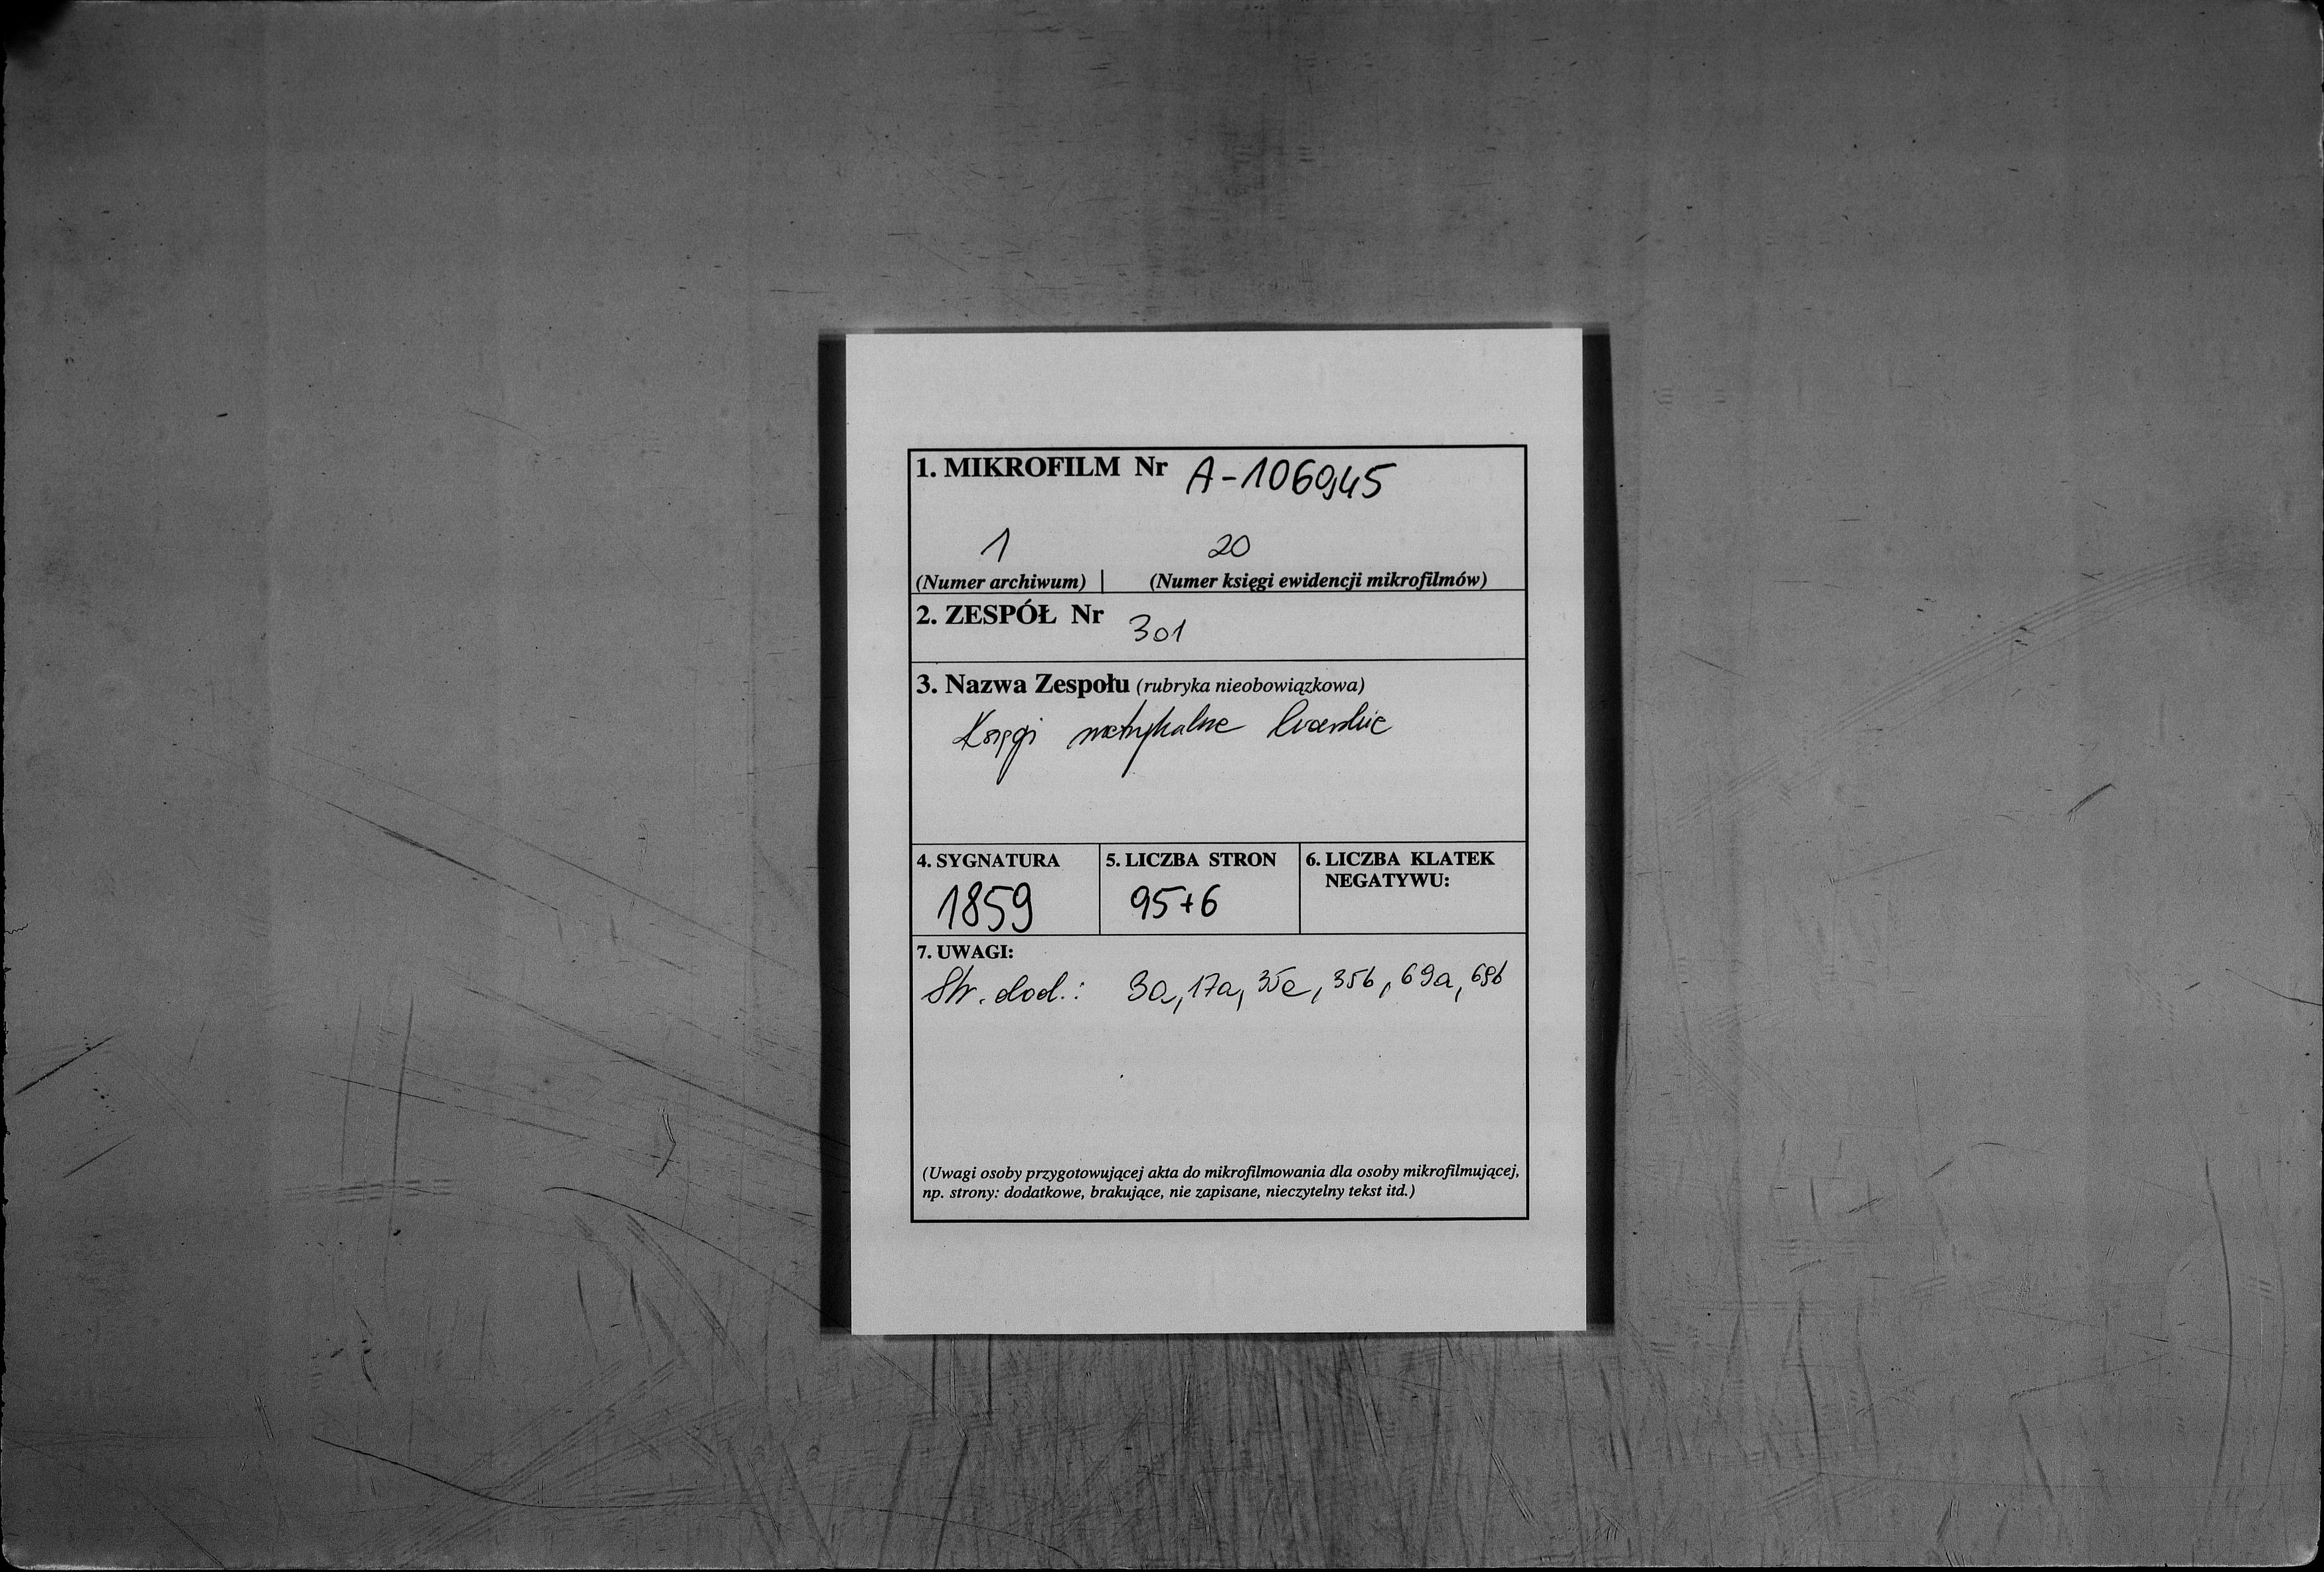 1. MIKROFILM Nr A-106945
1 20
(Numer archiwum) | (Numer księgi ewidencji mikrofilmów)
2. ZESPÓŁ Nr 301
3. Nazwa Zespołu (rubryka nieobowiązkowa)
Księgi metrykalne
4. SYGNATURA 5. LICZBA STRON 6. LICZBA KLATEK
NEGATYWU:
1859 95+6
7. UWAGI:
Str. dod.: 3a, 17a, 35a, 35b, 69a, 69b
(Uwagi osoby przygotowującej akta do mikrofilmowania dla osoby mikrofilmującej,
np. strony: dodatkowe, brakujące, nie zapisane, nieczytelny tekst itd.)